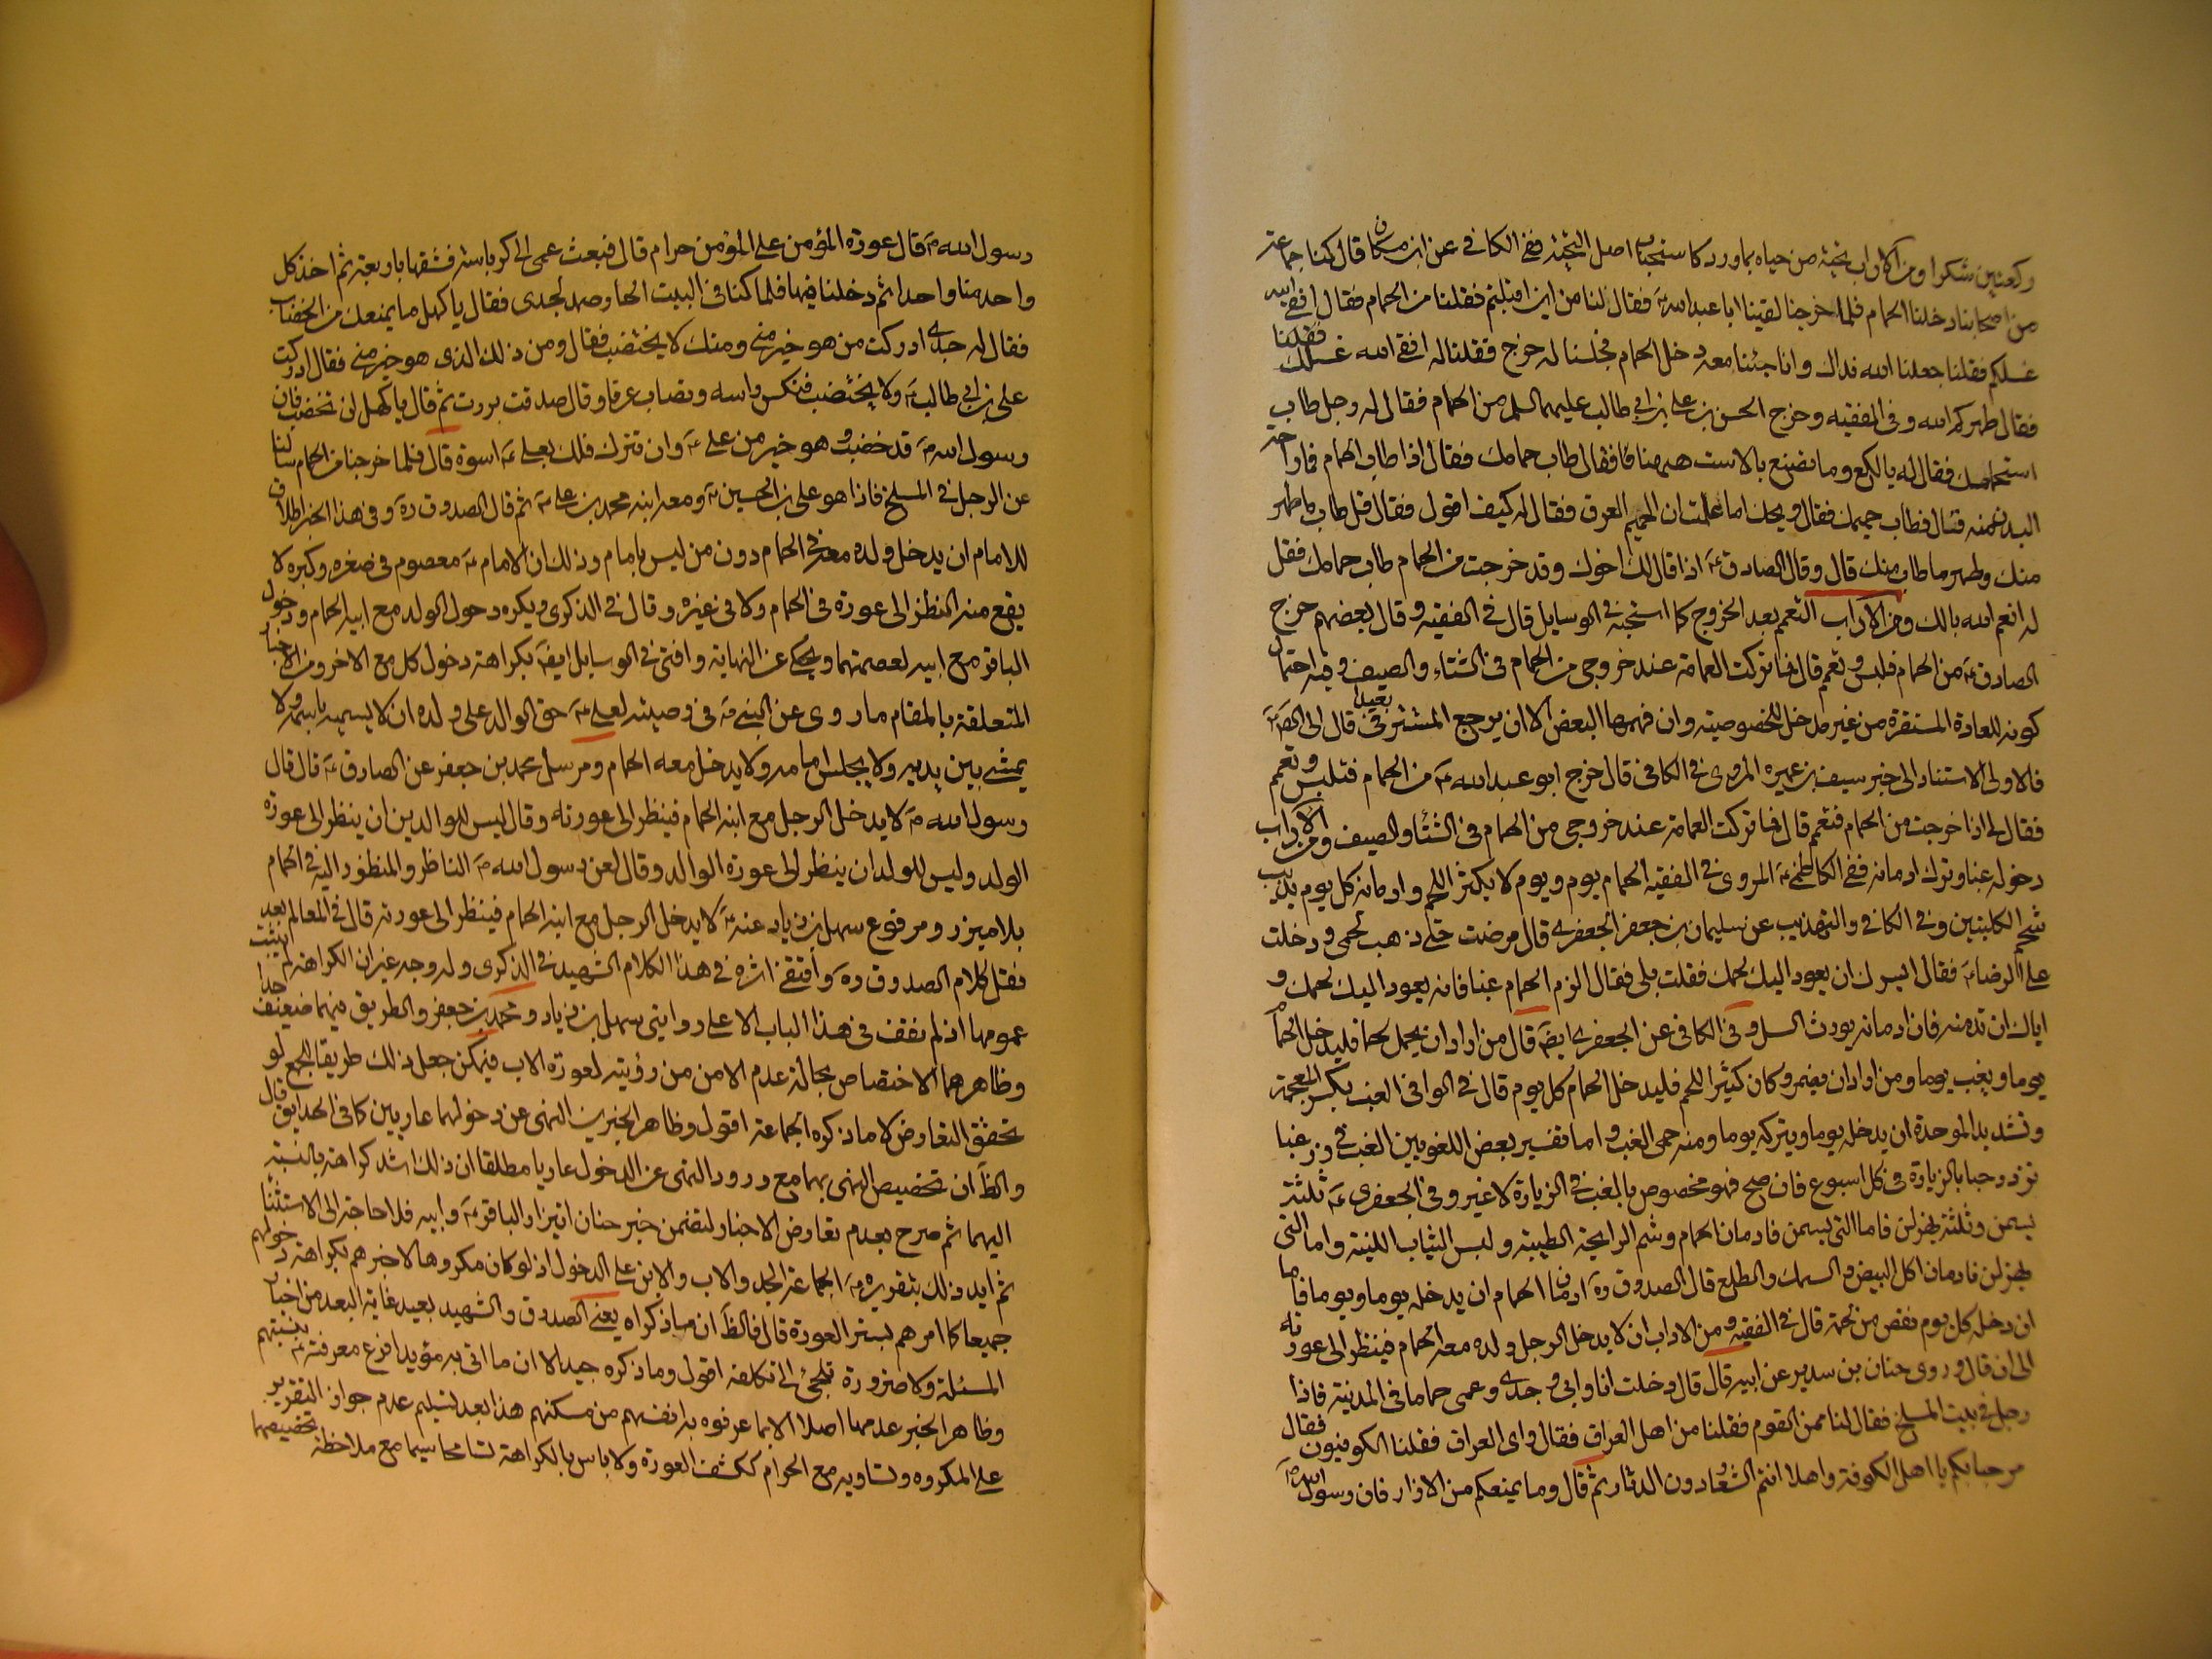 ركعتين شكرا ومن الاداب تحية من حياه بما ورد كاستحباب اصل التحية ففي الكافي عن ابن مسكان قال كنا جماعة
من اصحابنا دخلنا الحمام فلما خرجنا لقينا ابا عبد الله ع فقال لنا من اين اقبلتم فقلنا من الحمام فقال انقى الله
غسلكم فقلنا جعلنا الله فداك وانا جئنا معه دخل الحمام فجلسنا له خرج فقلنا له انقى الله غسلك
فقال طهركم الله وفي الفقيه وخرج الحسن بن علي بن ابي طالب عليهما السلم من الحمام فقال له رجل طاب
استحمامك فقال له يا لكع وما تصنع بالاست ههنا فقال طاب حمامك فقال اذا طاب الحمام فما راحة
البدن منه فقال فطاب حميمك فقال ويحك اما علمت ان الحميم العرق فقال له كيف اقول فقال قل طاب ما طهر
منك وطهر ما طاب منك قال وقال الصادق ع اذا قال لك اخوك وقد خرجت من الحمام طاب حمامك فقل
له انعم الله بالك ومن الاداب التعمم بعد الخروج كما استحبه في الوسايل قال في الفقيه وقال بعضهم خرج
الصادق ع من الحمام فلبس وتعمم قال فما تركت العمامة عند خروجي من الحمام في الشتاء والصيف وفيه احتمال
كونه للعادة المستقرة من غير مدخل للخصوصية وان فهمها البعض الا ان يرجع المستتر في قال الى الص ع بعيدا
فالاولى الاستناد الى خبر سيف بن عميره المروى في الكافي قال خرج ابو عبد الله ع من الحمام فتلبس وتعمم
فقال لي اذا خرجت من الحمام فتعمم قال فما تركت العمامة عند خروجي من الحمام في الشتاء والصيف ومن الاداب
دخوله غبا وترك ادمانه ففي الكاظمي ع المروى في الفقيه الحمام يوم ويوم لا يكثر اللحم وادمانه كل يوم يذيب
شحم الكليتين وفي الكافي والتهذيب عن سليمان بن جعفر الجعفري قال مرضت حتى ذهب لحمي ودخلت
على الرضا ع فقال ايسرك ان يعود اليك لحمك فقلت بلى فقال الزم الحمام غبا فانه يعود اليك لحمك و
اياك ان تدمنه فان ادمانه يورث السل وفي الكافي عن الجعفري ايضا قال من اراد ان يحمل لحما فليدخل الحمام
يوما ويغب يوما ومن اراد ان يضمر وكان كثير اللحم فليدخل الحمام كل يوم قال في الوافي الغب بكسر المعجمة
وتشديد الموحدة ان يدخله يوما ويتركه يوما ومنه حمى الغب واما تفسير بعض اللغويين الغب في زر غبا
تزدد حبا بالزيارة في كل اسبوع فان صح فهو مخصوص بالغب في الزيارة لا غير وفي الجعفري ع ثلثة
يسمن وثلثة يهزلن فاما التي يسمن فادمان الحمام وشم الرايحة الطيبة ولبس الثياب اللينة واما التي
يهزلن فادمان اكل البيض والسمك والطلع قال الصدوق ره ادمان الحمام ان يدخله يوما ويوما فا ما
ان دخله كل يوم نقص من لحمه قال في الفقيه ومن الاداب ان لا يدخل الرجل ولده معه الحمام فينظر الى عورته
الى ان قال وروى حنان بن سدير عن ابيه قال قال دخلت انا وابي وجدي وعمى حماما في المدينة فاذا
رجل في بيت المسلخ فقال لنا ممن القوم فقلنا من اهل العراق فقال واى العراق فقلنا الكوفيون فقال
مرحبا بكم يا اهل الكوفة واهلا انتم الشعار دون الدثار ثم قال وما يمنعكم من الازار فان رسول الله ص
رسول الله ص قال عورة المؤمن على المؤمن حرام قال فبعث عمى الى كرباسة فشقها باربعة ثم اخذ كل
واحد منا واحدا ثم دخلنا فيها فلما كنا في البيت الحار صمد لجدي فقال يا كهل ما يمنعك من الخضاب
فقال له جدي ادركت من هو خير مني ومنك لا يختضب فقال ومن ذلك الذي هو خير مني فقال ادركت
على بن ابي طالب ع ولا يختضب فنكس راسه وتصاب عرقا وقال صدقت بررت ثم قال يا كهل ان تخضب فان
رسول الله ص قد خضب وهو خير من علي ع وان تترك فلك بعلي ع اسوة قال فلما خرجنا من الحمام سالنا
عن الرجل في المسلخ فاذا هو علي بن الحسين ع ومعه ابنه محمد بن علي ع ثم قال الصدوق ره وفي هذا الخبر اطلاق
للامام ان يدخل ولده معه في الحمام دون من ليس بامام وذلك ان الامام ع معصوم في صغره وكبره لا
يقع منه النظر الى عورة في الحمام ولا في غيره وقال في الذكرى ويكره دخول الولد مع ابيه الحمام ودخول
الباقر مع ابيه لعصمتهما ويحكى عن النهاية وافتى في الوسايل ايضا بكراهة دخول كل مع الاخر ومن الاخبار
المتعلقة بالمقام ما روى عن النبي ص في وصيته لعلي ع حق الوالد على ولده ان لا يسميه باسمه ولا
يمشي بين يديه ولا يجلس امامه ولا يدخل معه الحمام ومرسل محمد بن جعفر عن الصادق ع قال قال
رسول الله ص لا يدخل الرجل مع ابنه الحمام فينظر الى عورته وقال ليس للوالدين ان ينظر الى عورة
الولد وليس للولد ان ينظر الى عورة الوالد وقال لعن رسول الله ص الناظر والمنظور اليه في الحمام
بلا ميزر ومرفوع سهل بن زياد عنه ع لا يدخل الرجل مع ابنه الحمام فينظر الى عورته قال في المعالم بعد
نقل كلام الصدوق ره واقتفى اثره في هذا الكلام الشهيد في الذكرى وله وجه غير ان الكراهة لم يثبت
عمومها اذ لم نقف في هذا الباب الا على روايتي سهل بن زياد ومحمد بن جعفر والطريق فيهما ضعيف جدا
وظاهرهما الاختصاص بحالة عدم الامن من رؤيته لعورة الاب فيمكن جعل ذلك طريقا للجمع لو
تحقق التعارض لا ما ذكره الجماعة اقول وظاهر الخبرين النهى عن دخولهما عاريين كما في الحدايق قال
والظ ان تخصيص النهى بهما مع ورود النهى عن الدخول عاريا مطلقا ان ذلك اشد كراهة بالنسبة
اليهما ثم صرح بعدم تعارض الاخبار لتضمن خبر حنان اتيزار الباقر ع وابيه فلا حاجة الى الاستثناء
ثم ايد ذلك بتقريره ع الجماعة الجد والاب والابن على الدخول اذ لو كان مكروها لاخبرهم بكراهة دخولهم
جميعا كما امرهم بستر العورة قال فالظ ان ما ذكراه يعني الصدوق والشهيد بعيد غاية البعد من اخبار
المسئلة ولا ضرورة تلجئ الى تكلفه اقول وما ذكره جيد الا ان ما اتى به مؤيدا فرع معرفته ع بنسبتهم
وظاهر الخبر عدمها اصلا الا بما عرفوه به انفسهم من مسكنهم هذا بعد تسليم عدم جواز التقرير
على المكروه وتساويه مع الحرام ككشف العورة ولا باس بالكراهة تسامحا سيما مع ملاحظة تخصيصهما